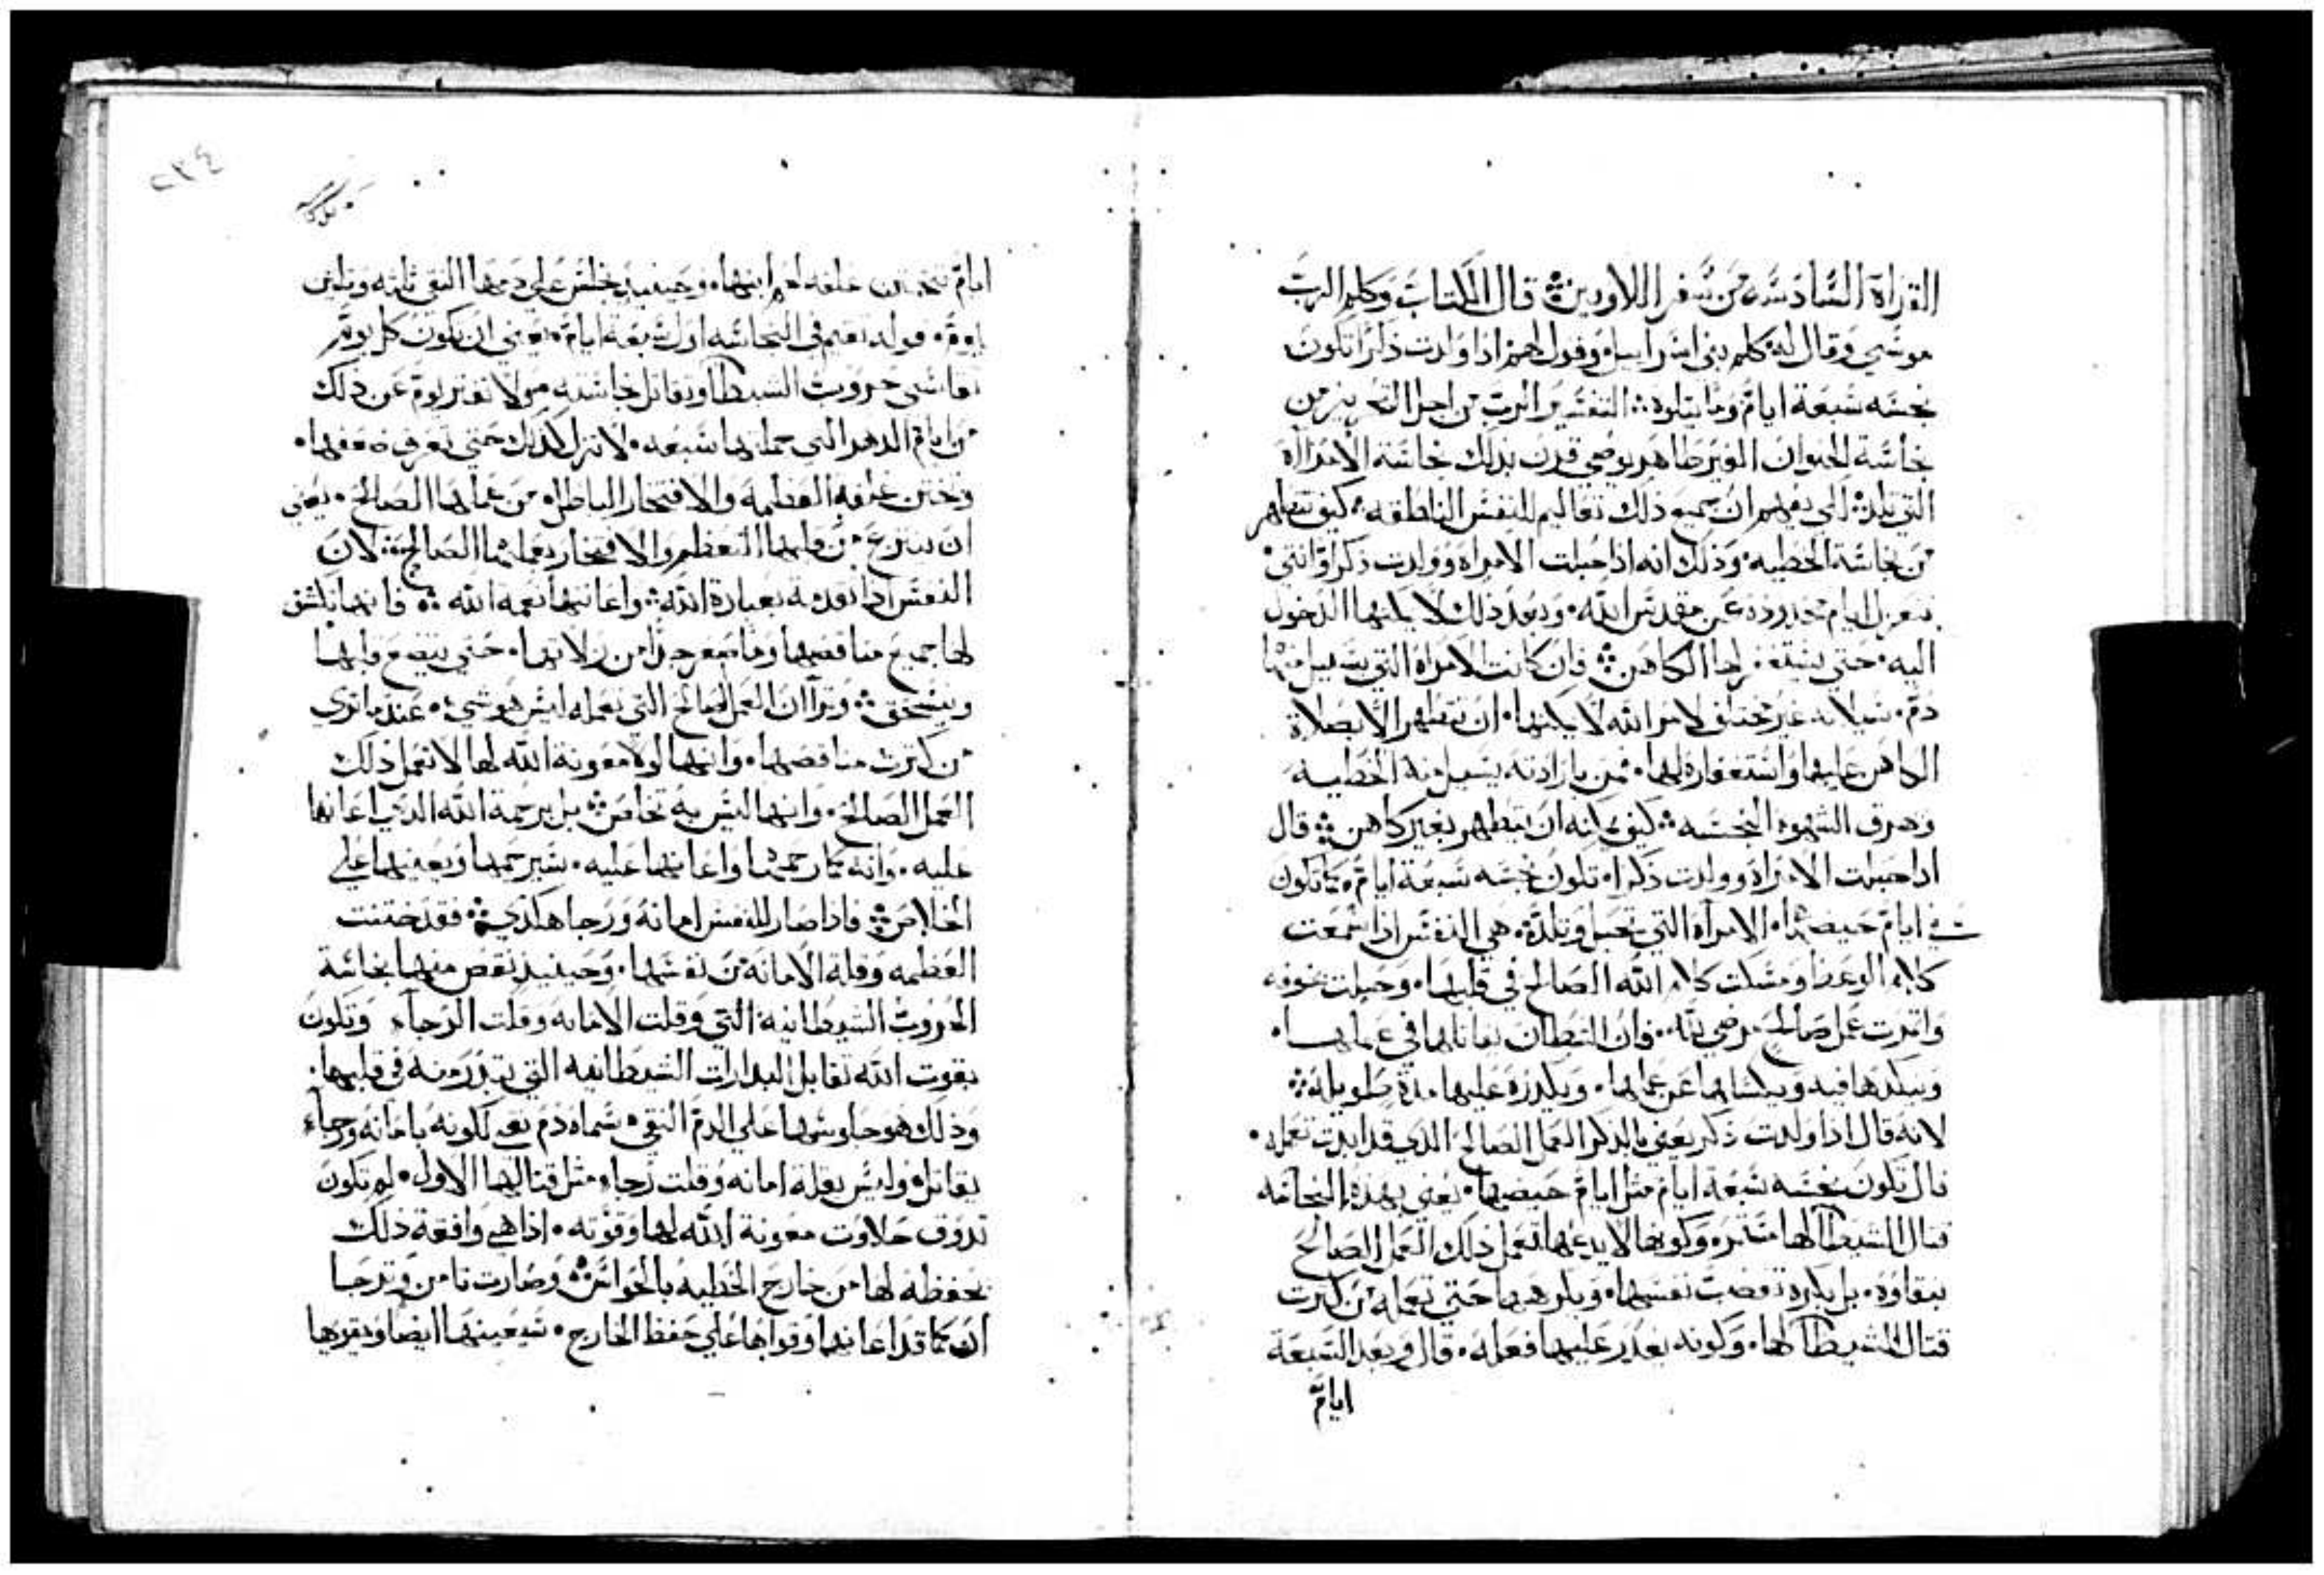 القراة السادسة من سفر اللاويين قال الكتاب وكلم الرب
موسي وقال له كلم بني اسراييل وقول لهم اذا ولدت ذكرا تكون
نجسه سبعة ايام وما يتلوه التفسير الرب من اجل
نجاسة الحيوان الغير طاهر يوصي قرن بذلك نجاسة الامراة
التي تلد لكي يفهم ان جميع ذلك تعاليم للنفس الناطقه كيف تتطهر
من نجاسة الخطيه وذلك انه اذا حبلت الامراه وولدت ذكرا او انتي
ايام محدوده عن مقدس الله وبعد ذلك لا يمكنها الدخول
اليه حتي يستغفر لها الكاهن فان كانت الامراة التي يسيل منها
دم سيلانه غير مختلف لامر الله لا يمكنها ان تتطهر الا بصلاة
الكاهن عليها واستغفاره لها فمن بارادته يسيل منه الخطيه
وهرف الشهوه النجسه كيف يمكنه ان يتطهر بغير كاهن قال
اذا حبلت الامراه وولدت ذكرا تكون نجسه سبعة ايام كما تكون
في ايام حيضها الامراه التي تحبل وتلد هي النفس اذا سمعت
كلام الوعظ ومسكت كلام الله الصالح في قلبها وحبلت بخوفه
واتمرت عمل صالح يرضي الله فان الشيطان يقاتلها في عملها
وينكدها فيه ويكسلها عن عملها ويكدره عليها مدة طويله
لانه قال اذا ولدت ذكر يعني بالذكر العمل الصالح الذي قد ابدت تعمله
قال تكون نجسه سبعة ايام مثل ايام حيضها يعني بهذه النجاسه
قتال الشيطان لها وكونها لا يدعها تعمل ذلك العمل الصالح
بنقاوه بل يكره تغصب نفسها ويكرهها حتي تعمله من كترت
قتال الشيطان لها وكونه يعدر عليها فعله قال وبعد السبعة
ايام
٢٣٤
ايام تختن غلفه وحينيد تجلس علي دمها النقي تلته وتلتين
يوم قوله تقيم في النجاسه اول سبعة ايام يعني ان تكون كل يوم
تقاسي حروب الشيطان وتقاتل نجاسته ولا تفتر يوم عن ذلك
من ايام الدهر التي جملتها سبعه لا تزل كذلك حتي تعرف ضعفها
وتختن غلفه العظمه والافتخار الباطل من عملها الصالح يعني
ان ينزع من قلبها التعظم والافتخار بعملها الصالح لان
النفس اذا تقدمة بعبادة الله واعانتها نعمه الله فانها تكشف
لها جميع مناقصها وما صغر جدا من زلاتها حتي يتضع قلبها
وينسحق وترا ان العمل الصالح التي تعمله ليس هو شي عند ما تري
من كترت مناقصها وانها لولا معونة الله لها لا تعمل ذلك
العمل الصالح وانها ليس به تخلص بل برحمة الله الذي اعانها
عليه وانه كما رحمها واعانها عليه سيرحمها ويعينها علي
الخلاص فاذا صار للنفس امانه ورجا هكذي فقد ختنت
العظمه وقلة الامانه من نفسها وحينيد تنقص منها نجاسة
الحروب الشيطانيه التي وقلت الامانه وقلت الرجاء وتكون
بقوت الله تقابل البدارات الشيطانيه التي تبدر منه في قلبها
وذلك هو جلوسها علي الدم النقي سماه دم نقي لكونه بامانه ورجاء
يقاتل وليس بقلة امانه وقلت رجاء مثل قتالها الاول لم تكون
تدوق حلاوت معونة الله لها وقوته اذا هي وافقة ذلك
بحفظه لها من خارج الخطيه بالحواس وصارت تامن وترجا
انه كما قد اعانها وقواها علي حفظ الخارج سيعينها ايضا ويقويها